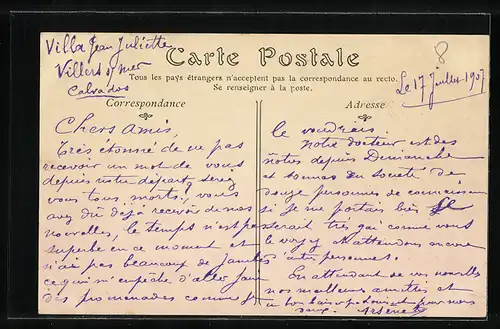 Villa Jean Juliette
Villers s/ mer
Calvados
Carte Postale
8
Tous les pays étrangers n'acceptent pas la correspondance au recto.
Se renseigner à la poste.
Le 17 Juillet 1907
Correspondance
Adresse
Chers amis,
Très étonné de ne pas
recevoir un mot de vous
depuis notre départ, seriez
vous tous morts, vous
avez dû déjà recevoir de nos
nouvelles, le temps n'est pas
superbe en ce moment et
n'ai pas beaucoup de jambes
ce qui m'empêche d'aller faire
des promenades comme je
le voudrais.
Notre docteur est des
nôtres depuis Dimanche
et sommes en société de
douze personnes de connaissance
si je me portais bien
serait très gai comme vous
le voyez N'attendons encore
autres personnes.
En attendant de vos nouvelles
nos meilleures amitiés et
un bon baiser pour nous